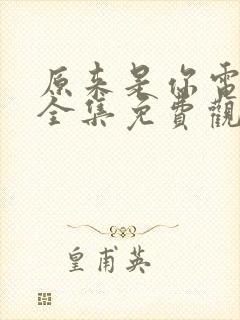 原来是你電
全集免費觀
皇甫英